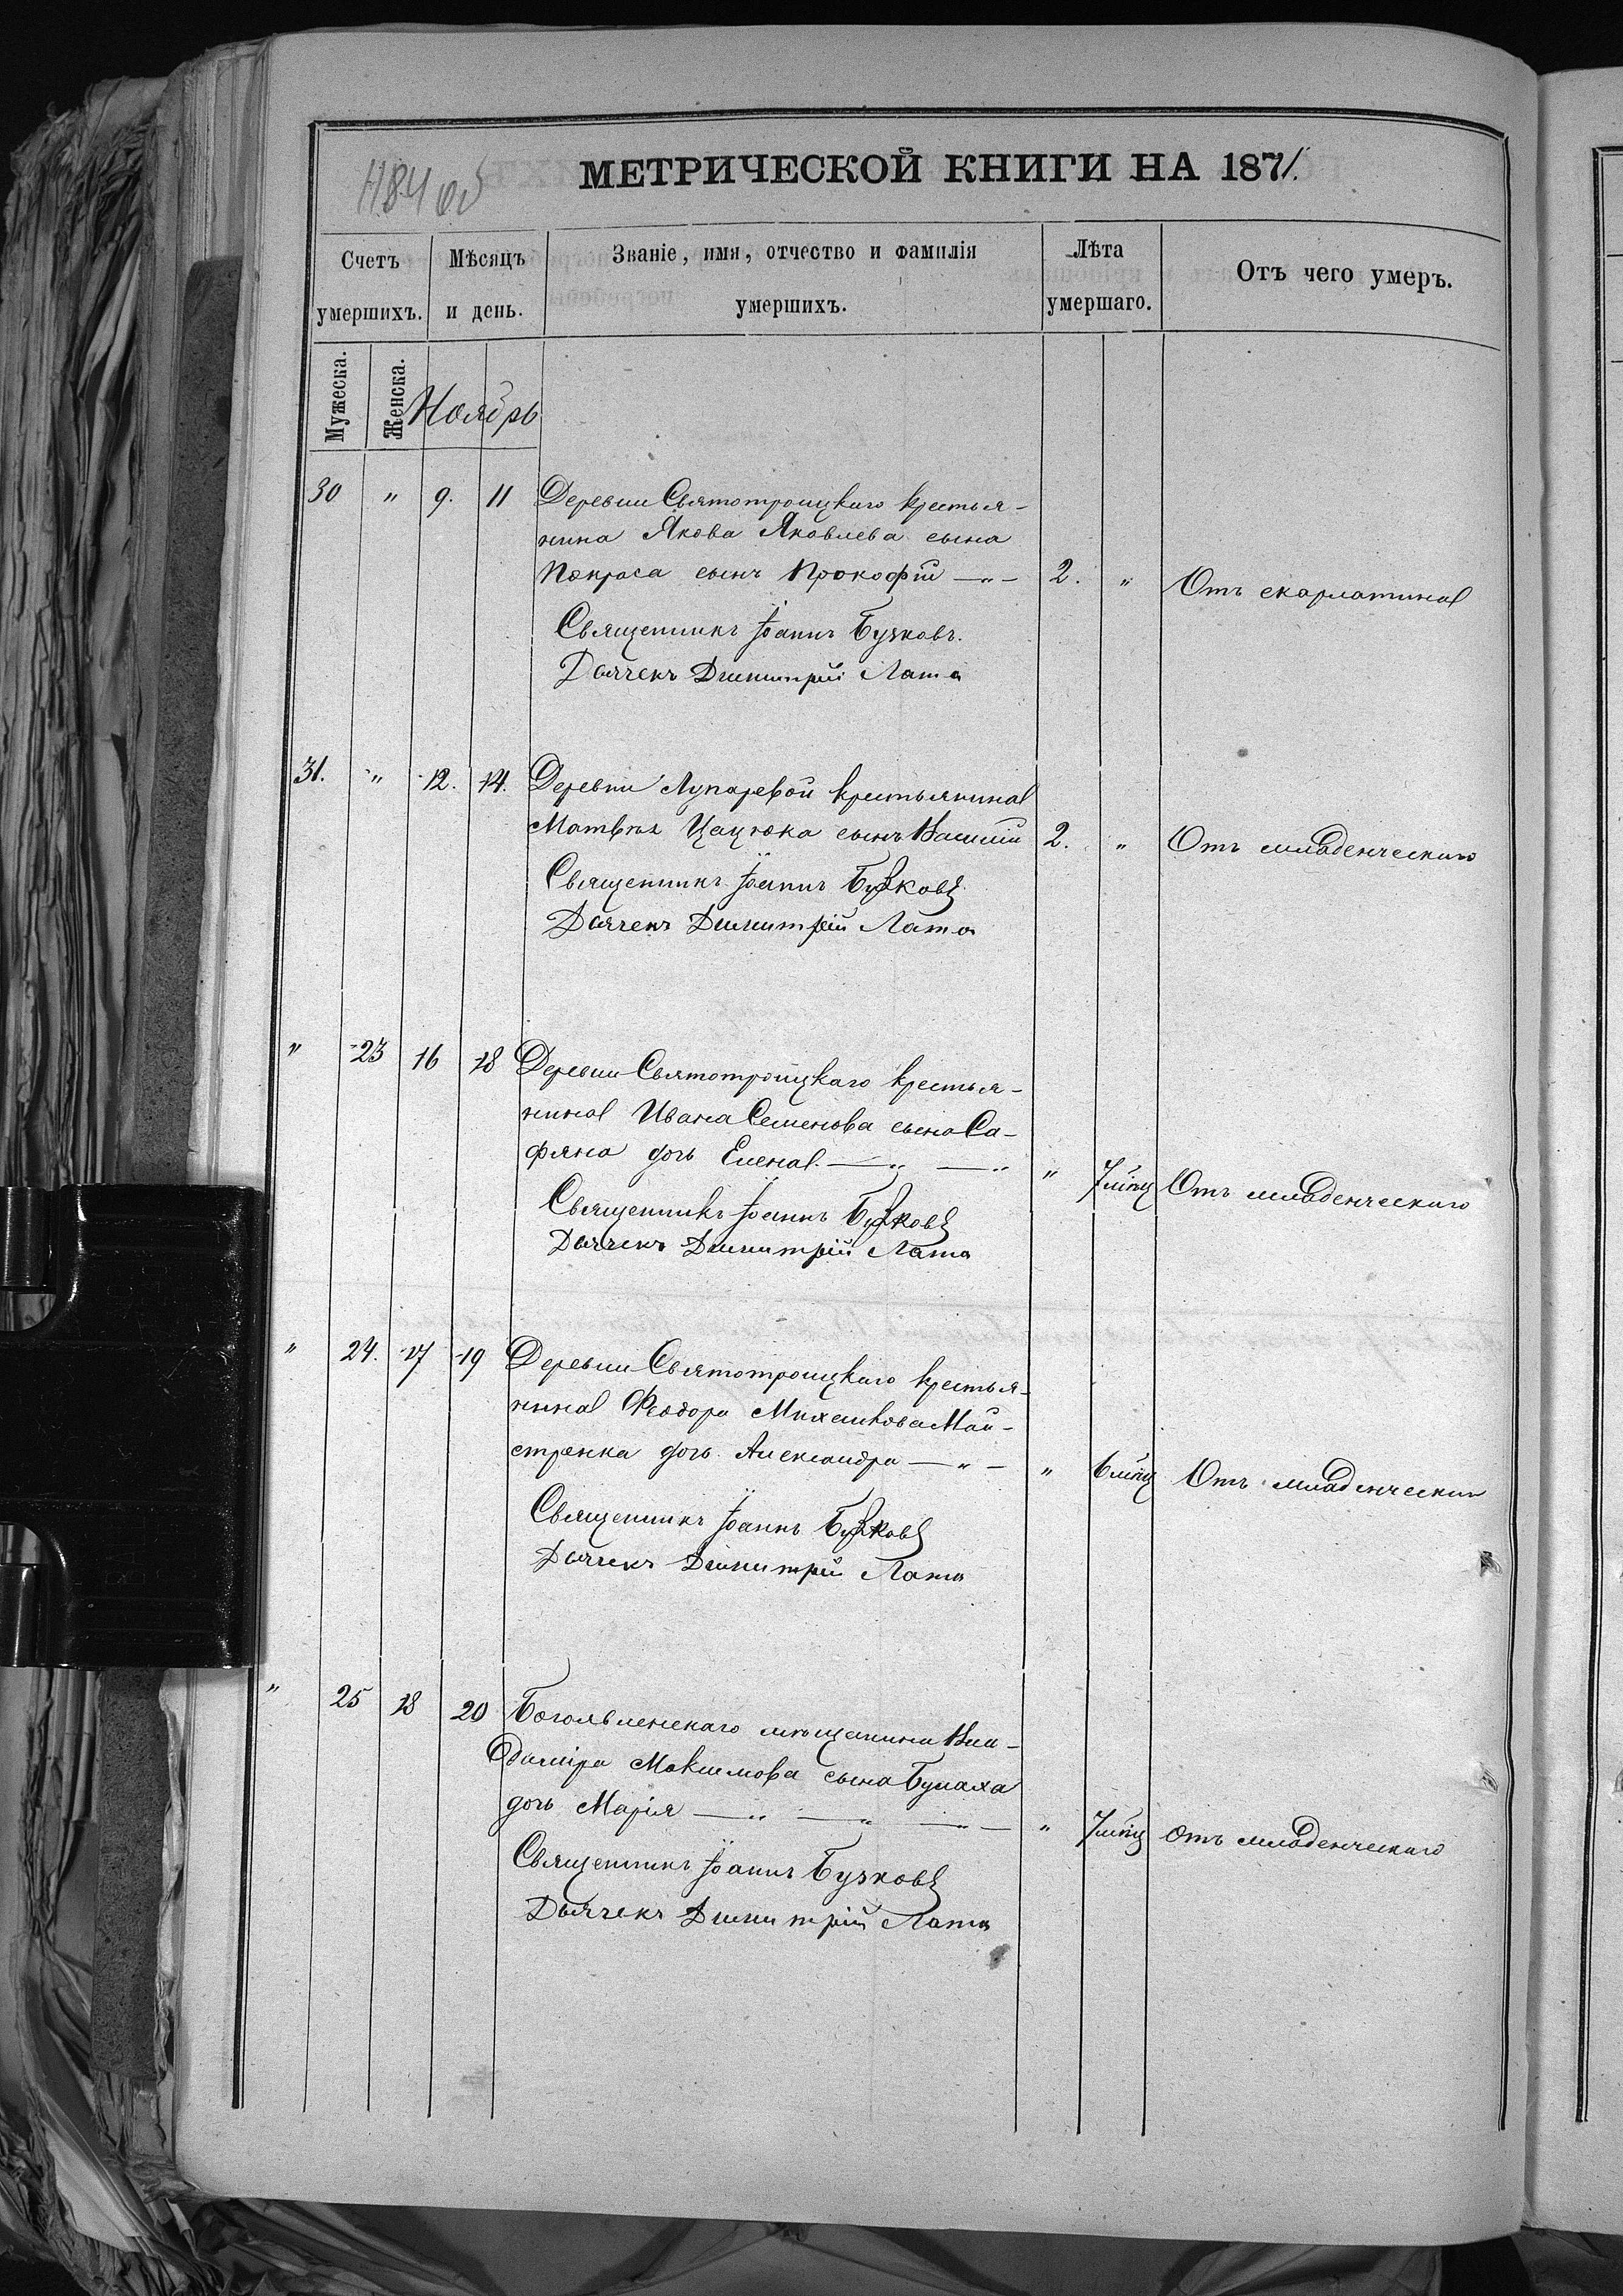 1184 об
МЕТРИЧЕСКОЙ КНИГИ НА 1871.
Счетъ умершихъ.
Мѣсяцъ и день.
Званіе, имя, отчество и фамилія умершихъ.
Лѣта умершаго.
Отъ чего умеръ.
Мужеска.
Женска.
Ноябрь
30 " 9. 11 Деревни Святотроицкаго крестья-
нина Якова Яковлева сына
Покраса сынъ Прокофій —"— 2. " Отъ скарлатины
Священникъ Іоаннъ Бучковъ.
Дьячекъ Димитрій Лата
31. " 12. 14. Деревни Лупаревой крестьянина
Матвѣя Цацюка сынъ Василій 2. " Отъ младенческаго
Священникъ Іоаннъ Бучковъ
Дьячекъ Димитрій Лата
" 23 16 18 Деревни Святотроицкаго крестья-
нина Ивана Семенова сына Са-
фяна дочь Елена. —"— —" " 7 мѣсц Отъ младенческаго
Священникъ Іоаннъ Бучковъ
Дьячекъ Димитрій Лата
" 24. 17 19 Деревни Святотроицкаго крестья-
нина Феодора Михайлова Май-
стренка дочь Александра —"— " 6 мѣсц Отъ младенческаго
Священникъ Іоаннъ Бучковъ
Дьячекъ Димитрій Лата
" 25 18 20 Богоявленскаго мѣщанина Вла-
диміра Максимова сына Булаха
дочь Марія —"— —"— —"— " 7 мѣсц Отъ младенческаго
Священникъ Іоаннъ Бучковъ
Дьячекъ Димитрій Лата